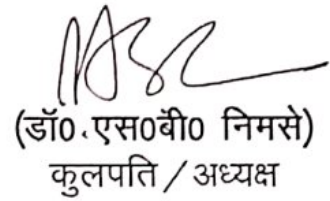 (डॉ0 एस0बी0 निमसे)
कुलपति / अध्यक्ष